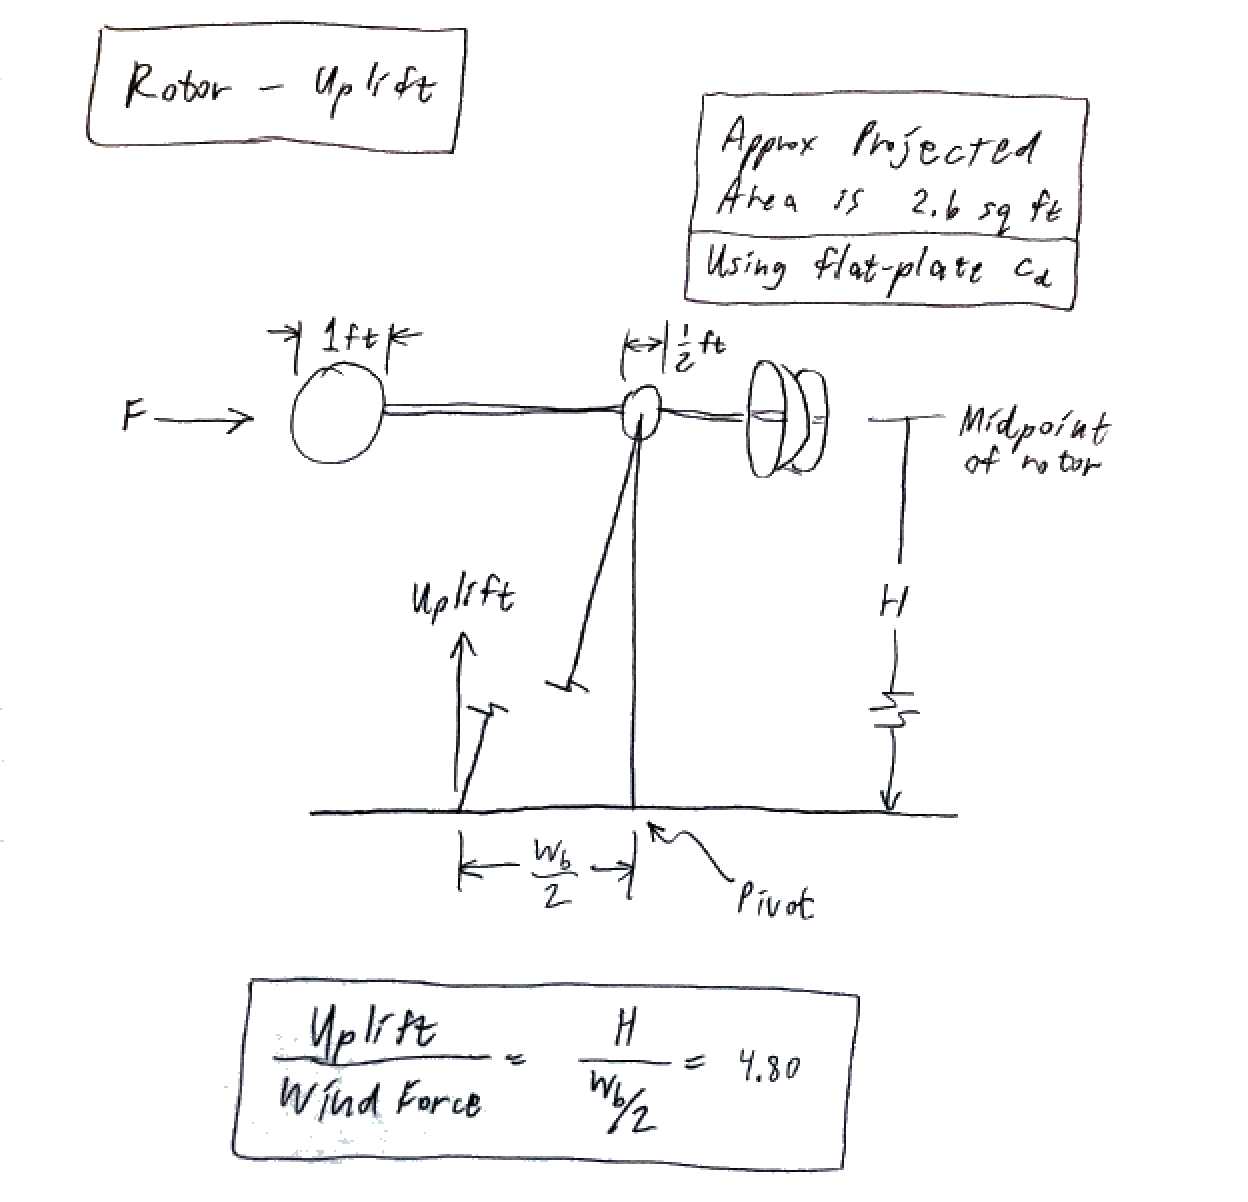 Rotor - Uplift
Approx Projected
Area is 2.6 sq ft
Using flat-plate Cd
1ft
1/2 ft
F
Midpoint
of rotor
Uplift
H
Wb/2
Pivot
Uplift/Wind Force = H/(Wb/2) = 4.80